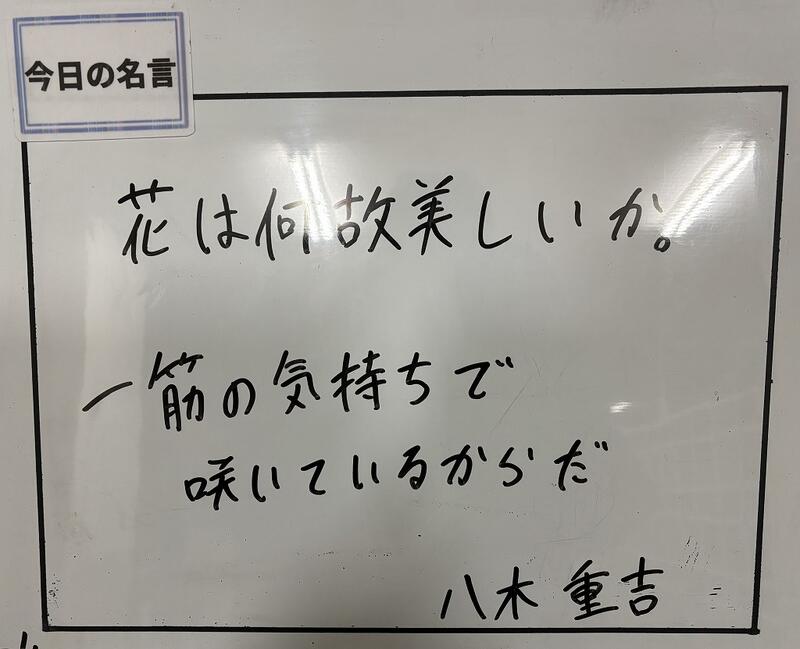 今日の名言
花は何故美しいか。
一筋の気持ちで
咲いているからだ
八木 重吉